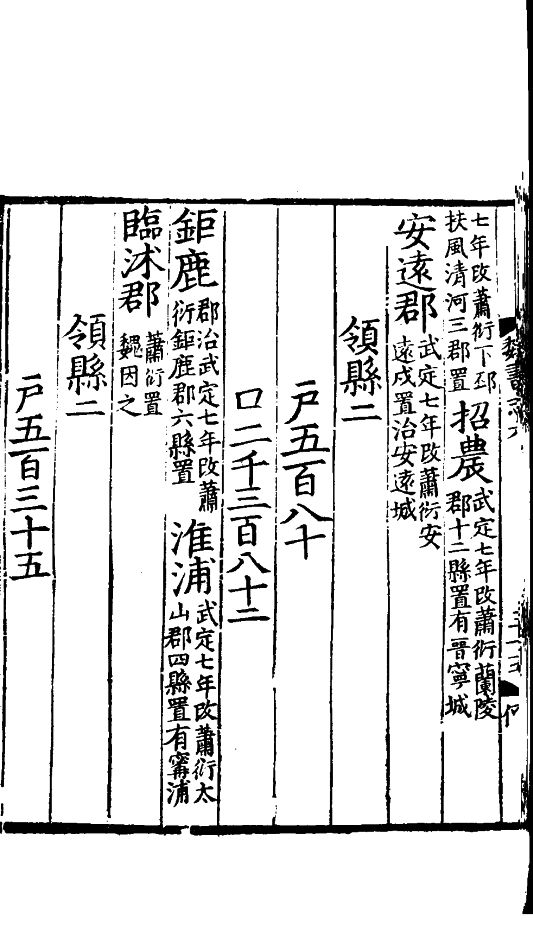 七年改蕭衍下邳
扶風清河三郡置
招農
武定七年改蕭衍蘭陵
郡十二縣置有晉寧城
安遠郡
武定七年改蕭衍安
遠戍置治安遠城
領縣二
戸五百八十
口二千三百八十二
鉅鹿
郡治武定七年改蕭
衍鉅鹿郡六縣置
淮浦
武定七年改蕭衍太
山郡四縣置有甯浦
臨沭郡
蕭衍置
魏因之
領縣二
戸五百三十五